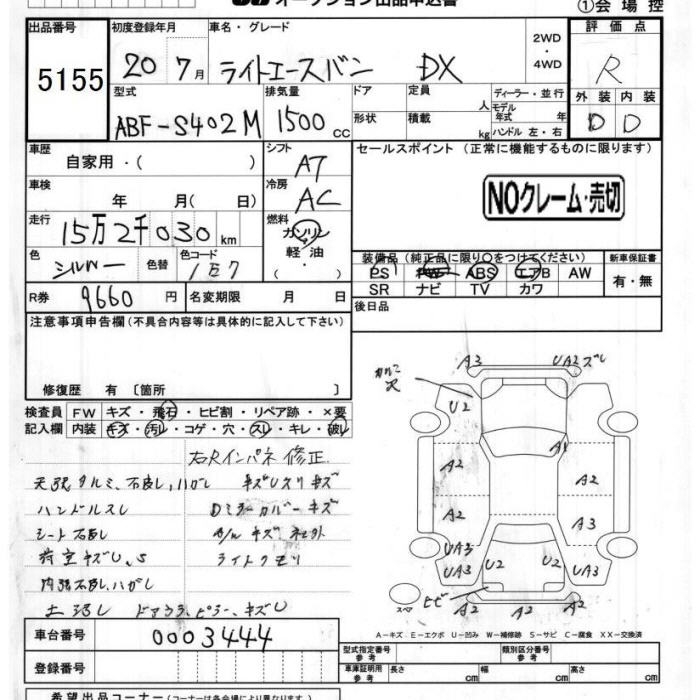 オークション出品申込書
①会場控
出品番号 初度登録年月 車名・グレード 2WD・4WD 評価点
5155 20 7月 ライトエースバン DX R
型式 排気量 ドア 定員 人 ディーラー・並行 モデル年式 年式 外装 内装
ABF-S402M 1500cc 形状 積載 kg ハンドル 左・右 D D
車歴 自家用・( ) シフト AT セールスポイント (正常に機能するものに限ります)
車検 年 月( 日) 冷房 AC NOクレーム・売切
走行 15万2千030km 燃料 ガソリン 軽油・( ・ )
色 シルバー 色替 色コード 1E7 装備品 (純正品に限り○をつけてください) 新車保証書
PS PW ABS エアB AW 有・無
SR ナビ TV カワ
R券 9660円 名変期限 月 日 後日品
注意事項申告欄(不具合内容等は具体的に記入して下さい)
修復歴 有〔箇所 〕
検査員 FW キズ・飛石・ヒビ割・リペア跡・×要
記入欄 内装 キズ・汚レ・コゲ・穴・スレ・キレ・破レ
右Rインパネ修正
天張タルミ、不良し、ハガレ
ハンドルスレ Dミラーカバーキズ
シート
荷室キズU、S ライトクモリ
内張 ハガレ
ドアウラ、ピラー、キズU
A3 UA2 ズレ
U2
A1
A2 A2
A2 A3
UA3
UA3 U2 U2 UA3
スペア ヒビ A2 A2 A2
A-キズ E-エクボ U-凹み W-補修跡 S-サビ C-腐食 XX-交換済
車台番号 0003444
型式指定番号 参考 類別区分番号 参考
登録番号 車庫証明用 参考 長さ cm 幅 cm 高さ cm
希望出品コーナー(コーナーは各会場により異なります)